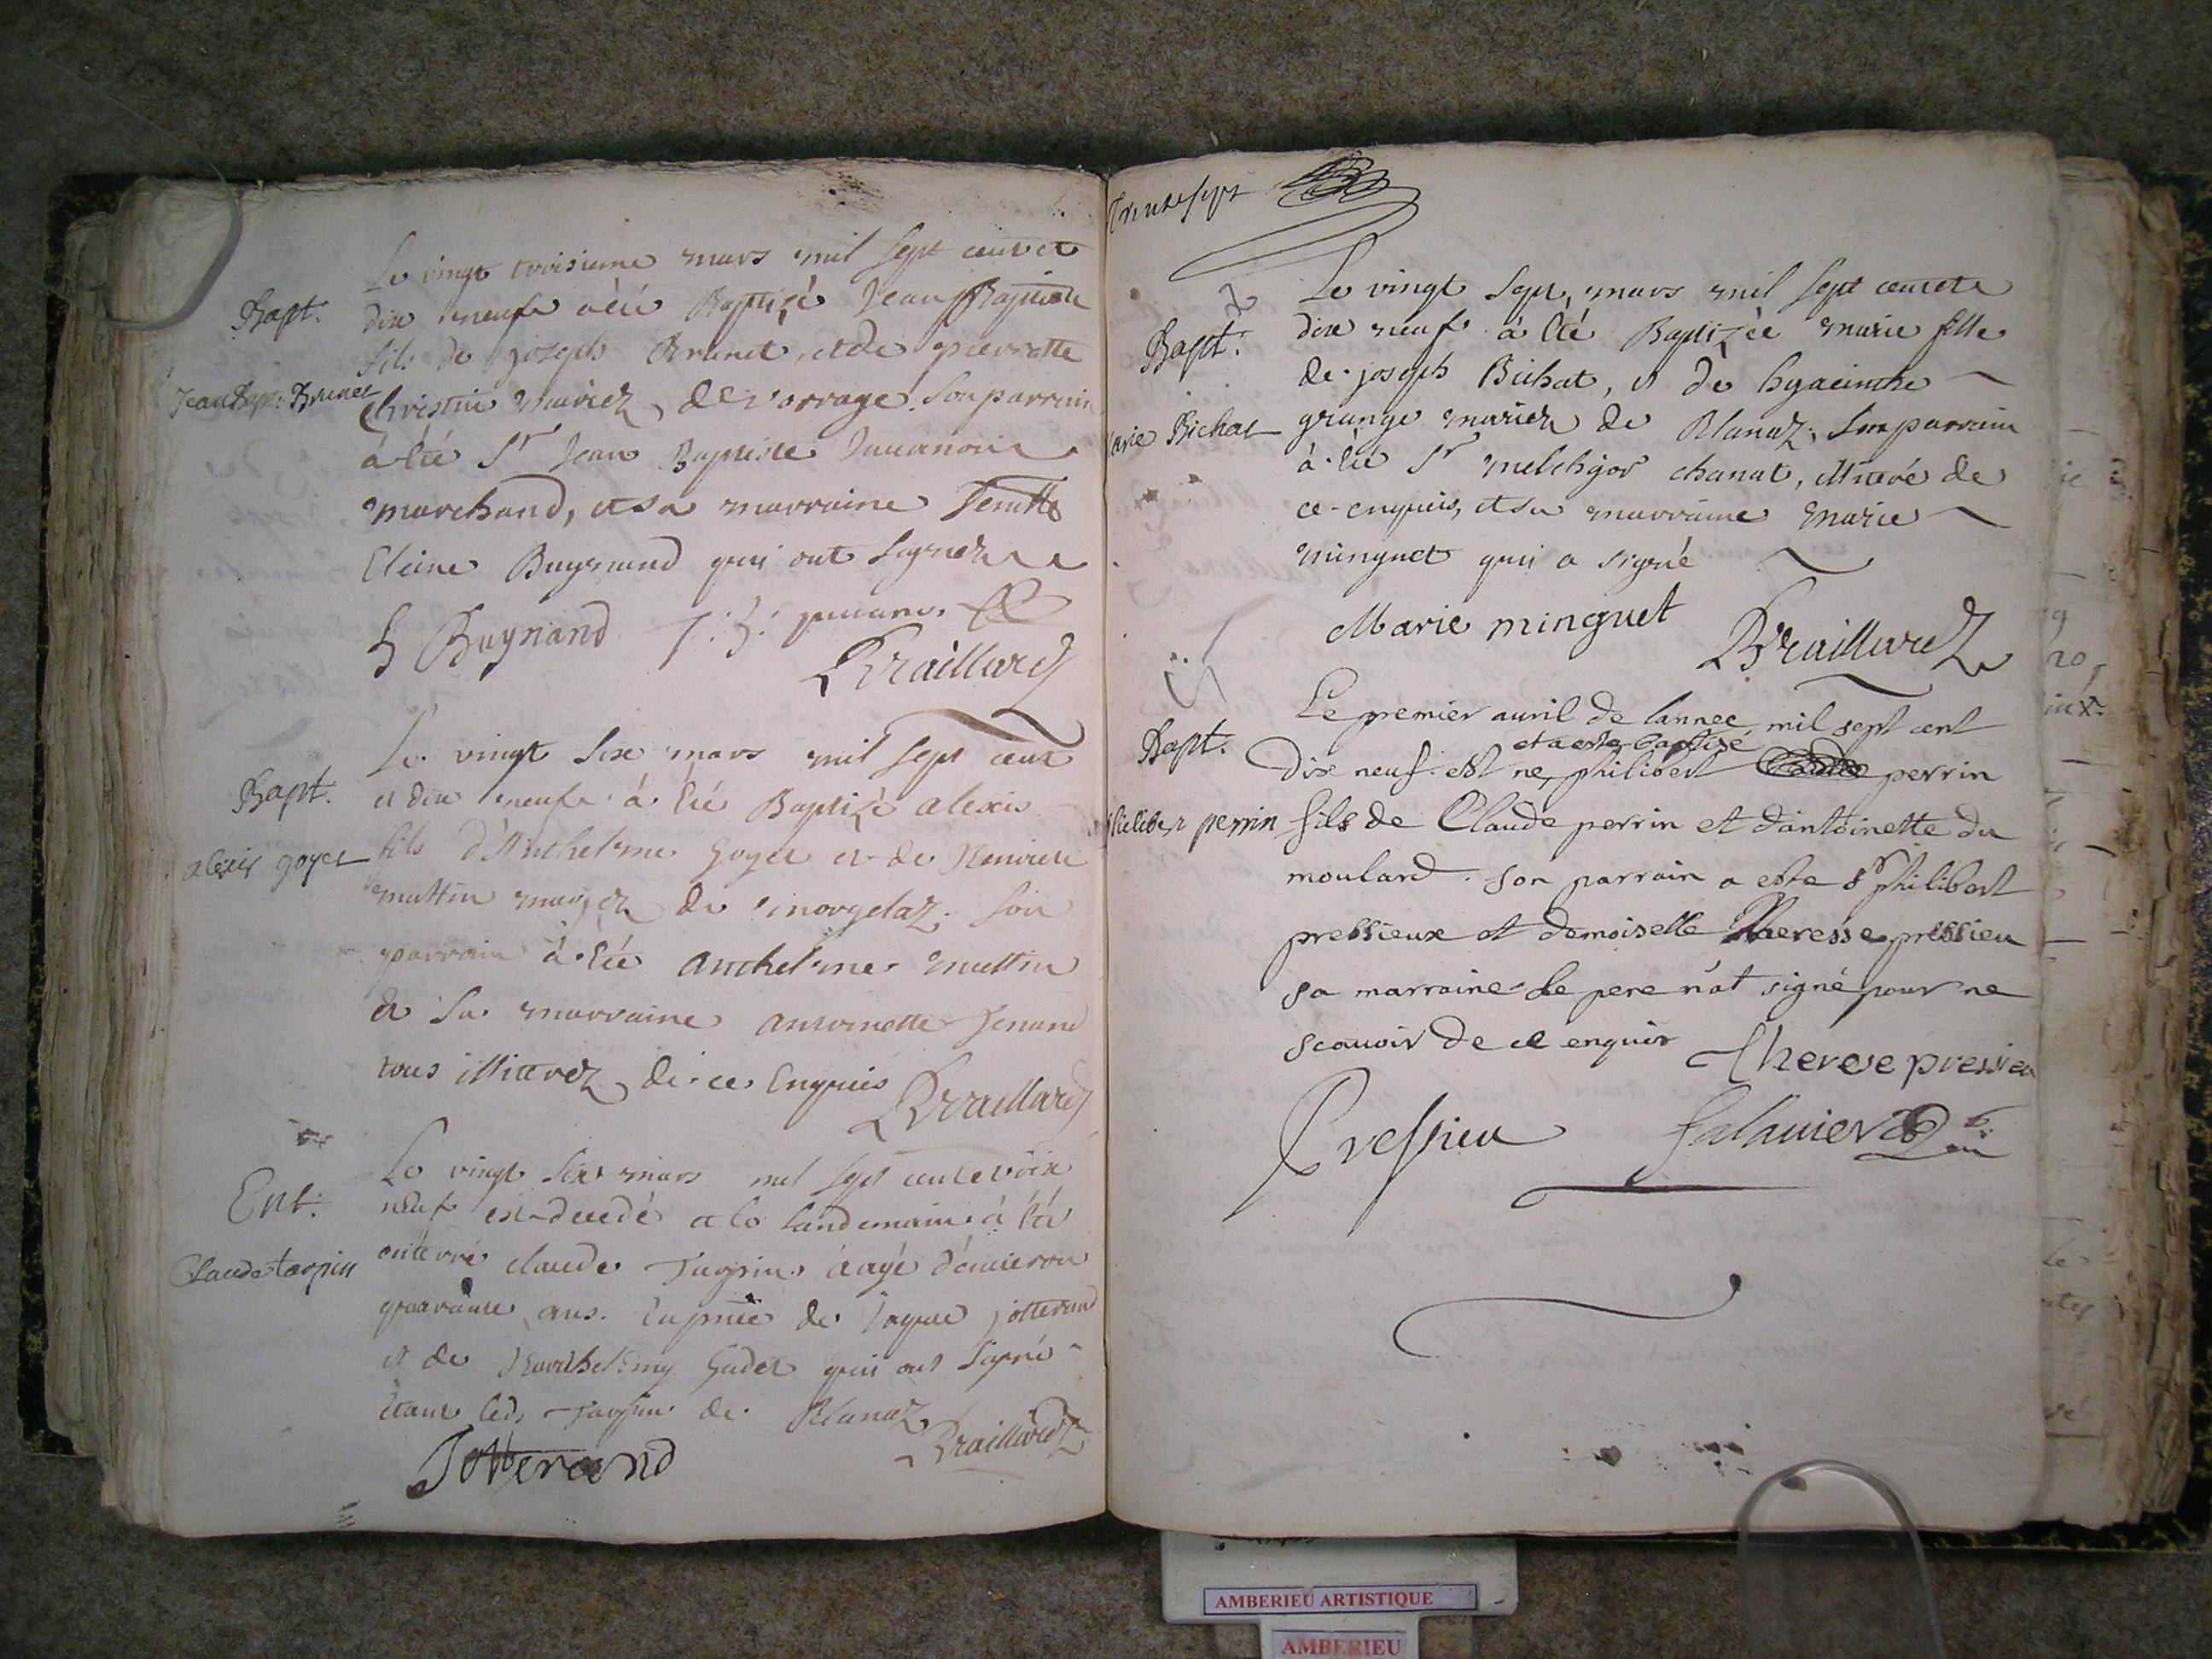 Le vingt troisieme mars mil sept cent et
Bapt.
dix neufe a été Baptizé Jean Baptiste
fils de joseph Brunet, et de pierrette
Jean Bap: Brunet
Christin mariez, de vorrage. Son parrain
à été Sr Jean Baptiste
marchand, et sa marraine
Eleine Buynand qui ont signez
h Buynand J: B:
Braillard
Le vingt six mars mil sept cent
Bapt.
et dix neufe à été Baptizé alexis
alexis goyet
fils d'Anthelme Goyet et de
muttin mariez de Son
parrain à été anthelme muttin
et Sa marraine antoinette Jenand
tous illiterez de ce Enquis
Braillard
Le vingt six mars mil sept cent et dix
Ent.
neuf est decedé et le landemain à été
enterré claude Turpin âagé d'environ
Claude turpin
quarante ans. En pnce de Jaque jotterand
et de Barthelemy Godet qui ont signé
étant led. Turpin de Blanaz
Braillard
Jotterand
Trente sept
Le vingt sept mars mil sept cent et
Bapt.
dix neuf à été Baptizée marie fille
de joseph Bichat, et de hyacinthe
Marie Bichat
grange mariez de Blanaz, Son parrain
à été Sr melchyor chanat, illiteré de
ce enquis, et sa marraine marie
minguet qui a signé
Marie minguet
Braillard
Le premier auril de lannee mil sept cent
Bapt.
et a este baptisé
Dix neuf est ne, philibert perrin
philibert perrin
fils de Claude perrin et dantoinette du
moulard. son parrain a este sr philibert
pressieux et demoiselle Theresse pressieu
sa marraine Le pere n'at signé pour ne
scauoir de ce enquis
Therese pressieu
Pressieu
falauier
AMBERIEU ARTISTIQUE
AMBERIEU